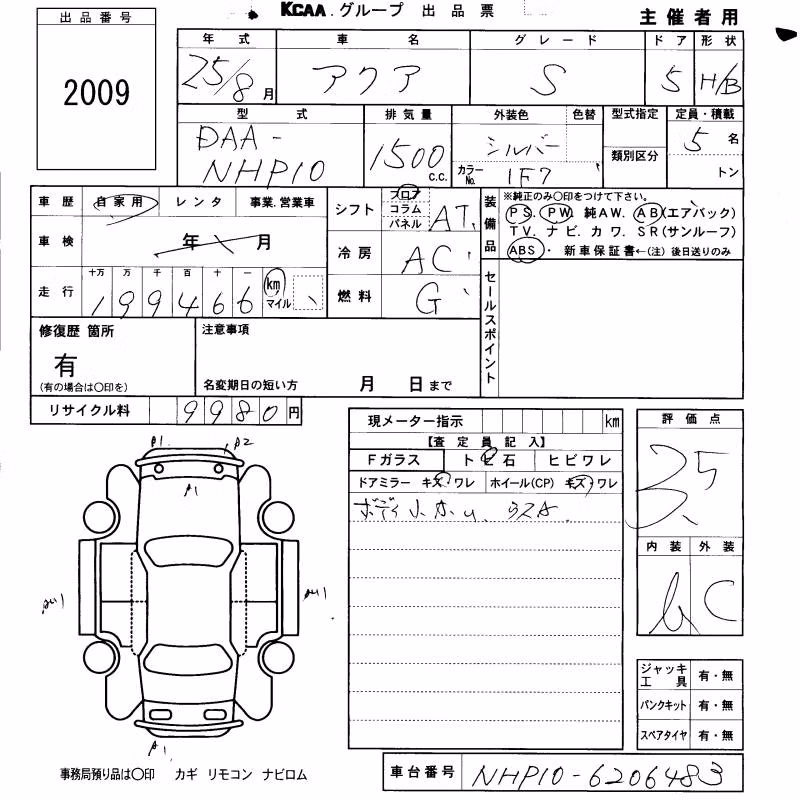 KCAA.グループ 出品票
主催者用
出品番号
2009
年式 車名 グレード ドア 形状
25/8月 アクア S 5 H/B
型式 排気量 外装色 色替 型式指定 定員・積載
DAA-
NHP10
1500 C.C.
シルバー
カラーNo. 1F7
類別区分
5名
トン
車歴 自家用 レンタ 事業.営業車
車検 年 月
走行 十万 万 千 百 十 一
199466 km マイル
シフト フロア コラム パネル AT
冷房 AC
燃料 G
装備品
※純正のみ○印をつけて下さい。
PS. PW. 純AW. AB(エアバック)
TV. ナビ. カワ. SR(サンルーフ)
ABS・ 新車保証書←(注) 後日送りのみ
セールスポイント
修復歴 箇所
有
(有の場合は○印を)
注意事項
名変期日の短い方 月 日まで
リサイクル料 9980円
現メーター指示 km
【査定員記入】
Fガラス トビ石 ヒビワレ
ドアミラー キズ・ワレ ホイール(CP) キズ・ワレ
ボディ小
評価点
3.5
内装 外装
C
A1. A2
A1
A1.
ジャッキ工具 有・無
パンクキット 有・無
スペアタイヤ 有・無
事務局預り品は○印 カギ リモコン ナビロム
車台番号 NHP10-6206483